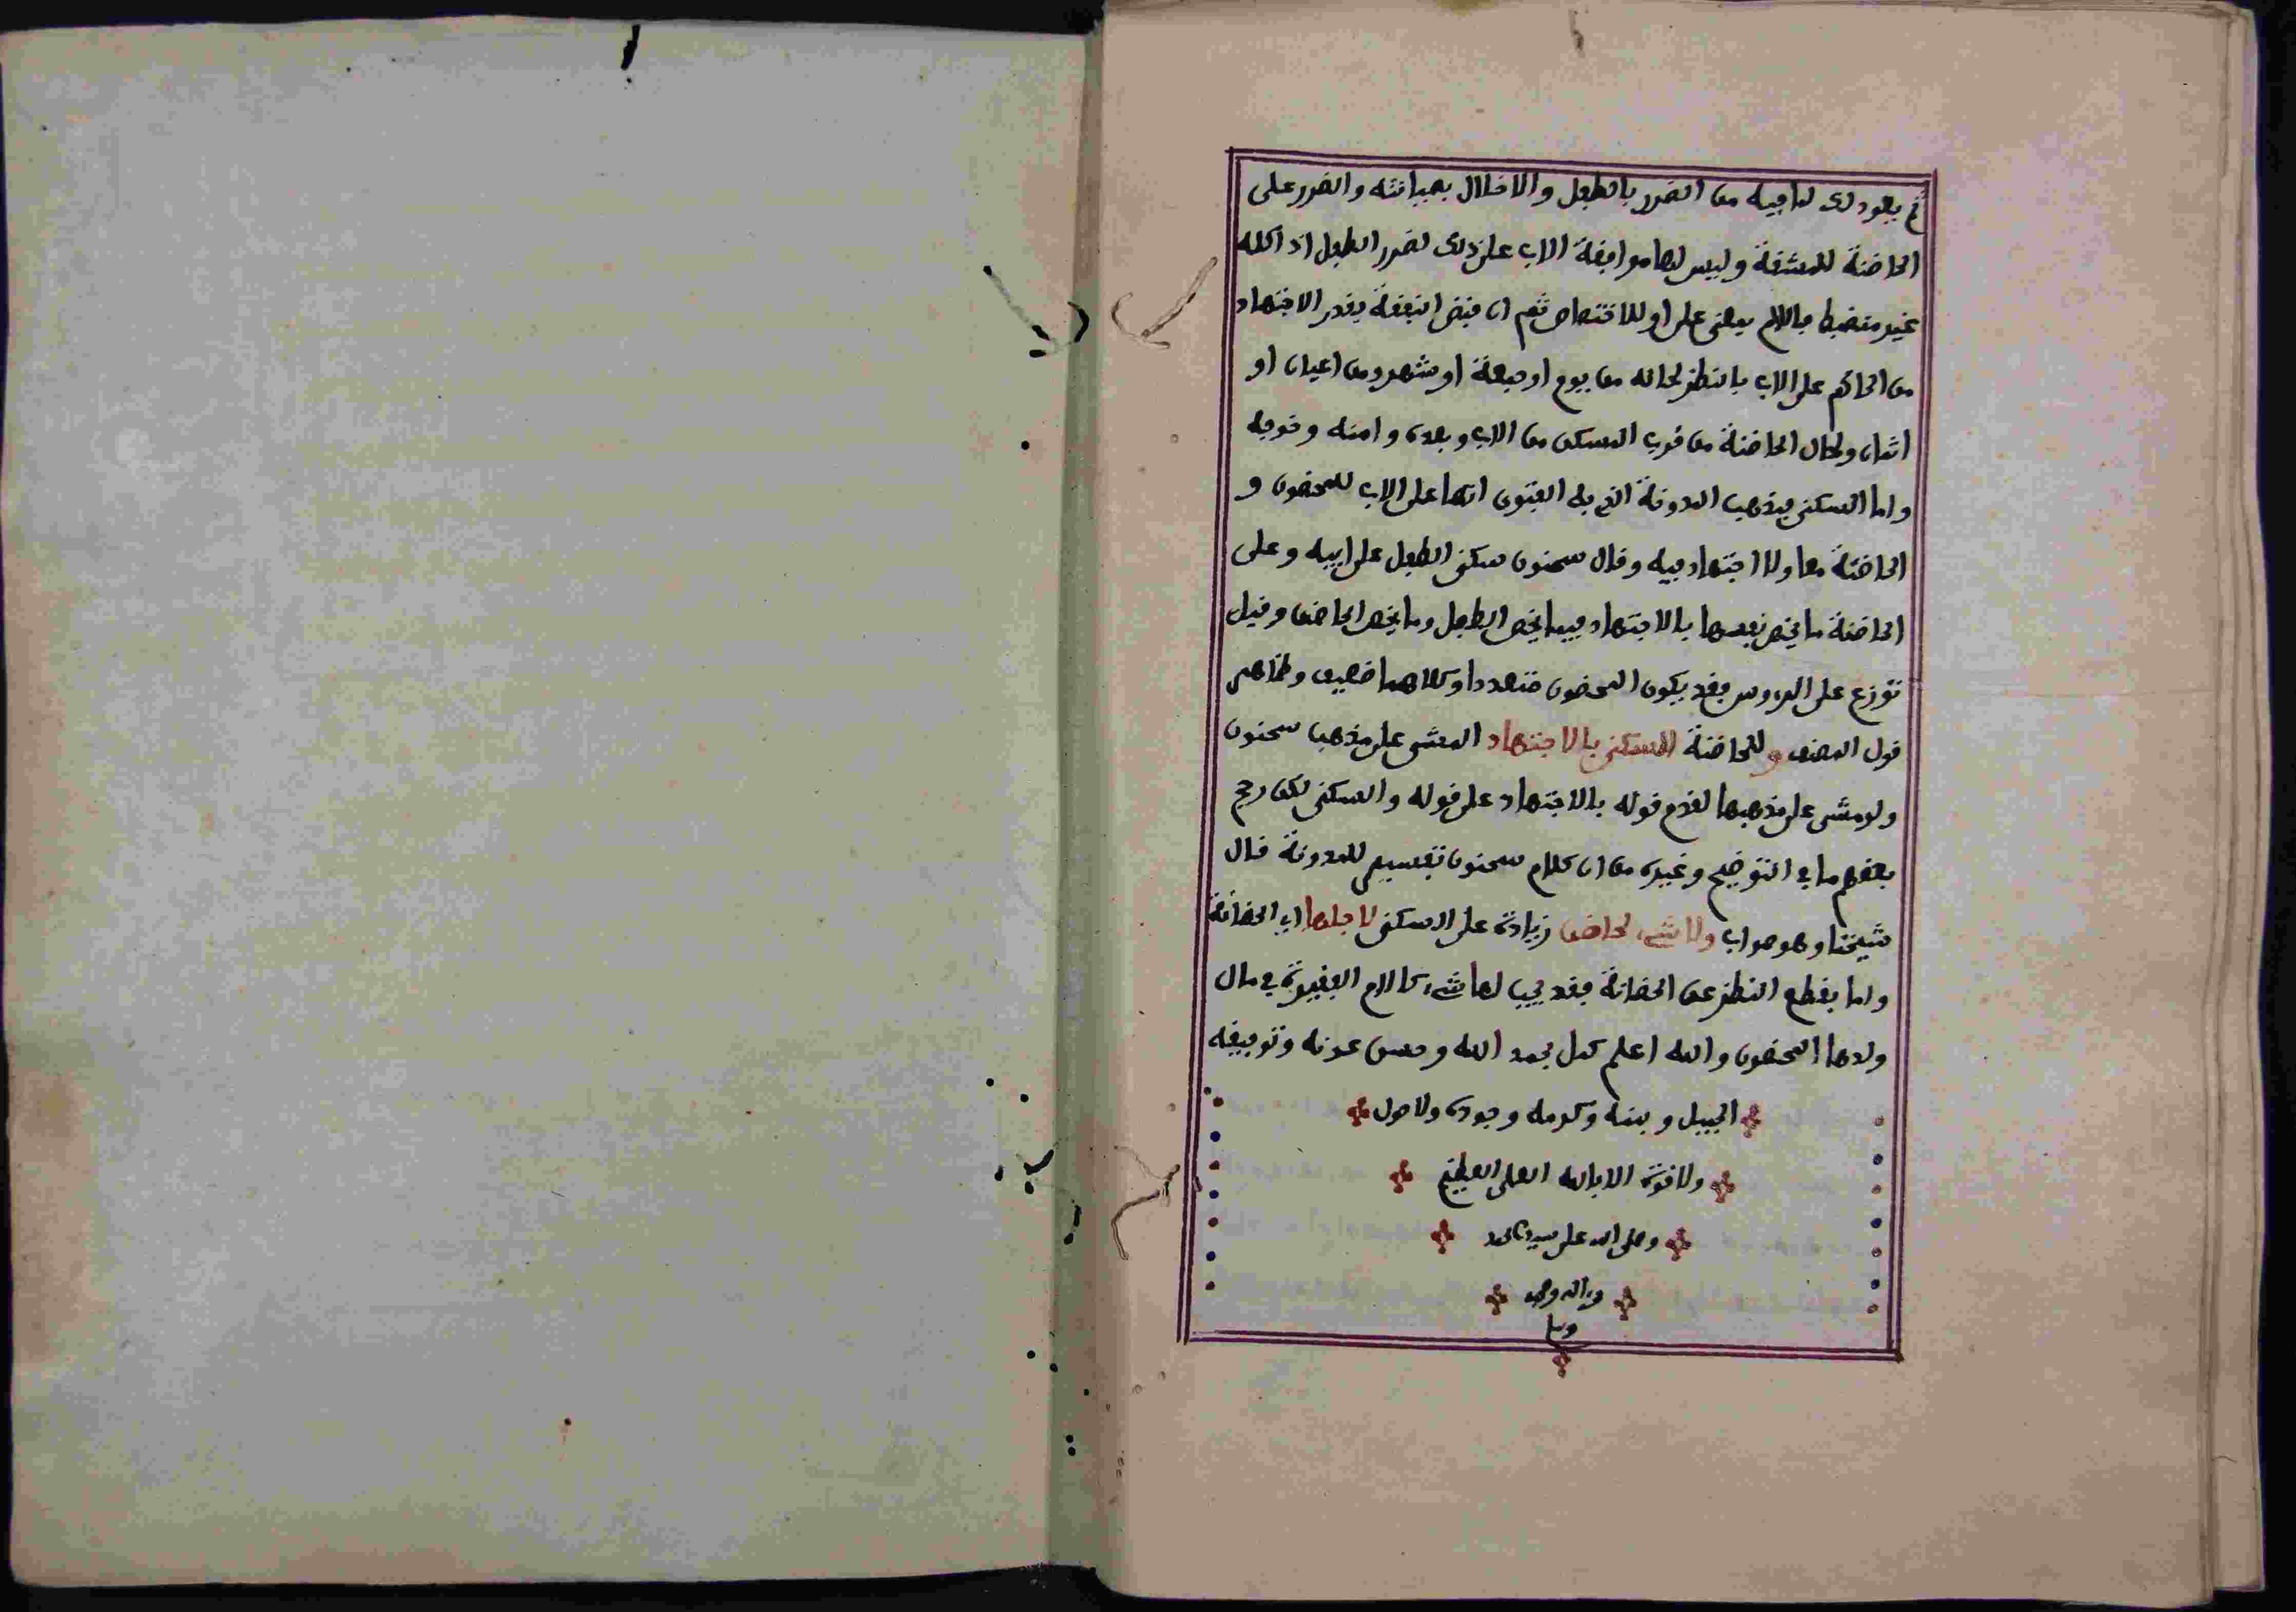 ثم يعود لك لما فيه من الضرر بالطفل والاخلال بصيانته والضرر على
الحاضنة للمشقة وليس لها موافقة الاب على ذلك لضرر الطفل اذ اكله
غير منضبط باللام بمعنى على او للاختصاص ثم ان قبض النفقة يقدر بالاجتهاد
من الحاكم على الاب بالنظر لحاله من يوم او جمعة او شهر ومن اعيان او
اثمان ولحال الحاضنة من قرب المسكن من الاب وبعده وامنه وخوفه
واما السكنى فمذهب المدونة الذي به الفتوى انها على الاب للمحضون و
الحاضنة معا ولا اجتهاد فيه وقال سحنون سكنى الطفل على ابيه وعلى
الحاضنة ما يخص نفسها بالاجتهاد فيما يخص الطفل وما يخص الحاضن وقيل
توزع على الرءوس فقد يكون المحضون متعددا وكلاهما ضعيف وظاهر
قول المصنف وللحاضنة السكنى بالاجتهاد المشي على مذهب سحنون
ولو مشى على مذهبها لقدم قوله بالاجتهاد على قوله والسكنى لكن رجح
بعضهم ما في التوضيح وغيره من ان كلام سحنون تفسير للمدونة قال
شيخنا وهو صواب ولا شيء لحاضن زيادة على السكنى لاجلها اي الحضانة
واما بقطع النظر عن الحضانة فقد يجب لها شيء كالام الفقيرة في مال
ولدها المحضون والله اعلم كمل بحمد الله وحسن عونه وتوفيقه
الجميل وبمنه وكرمه وجوده ولا حول
ولا قوة الا بالله العلي العظيم
وصلى الله على سيدنا محمد
وءاله وصحبه
وسلم